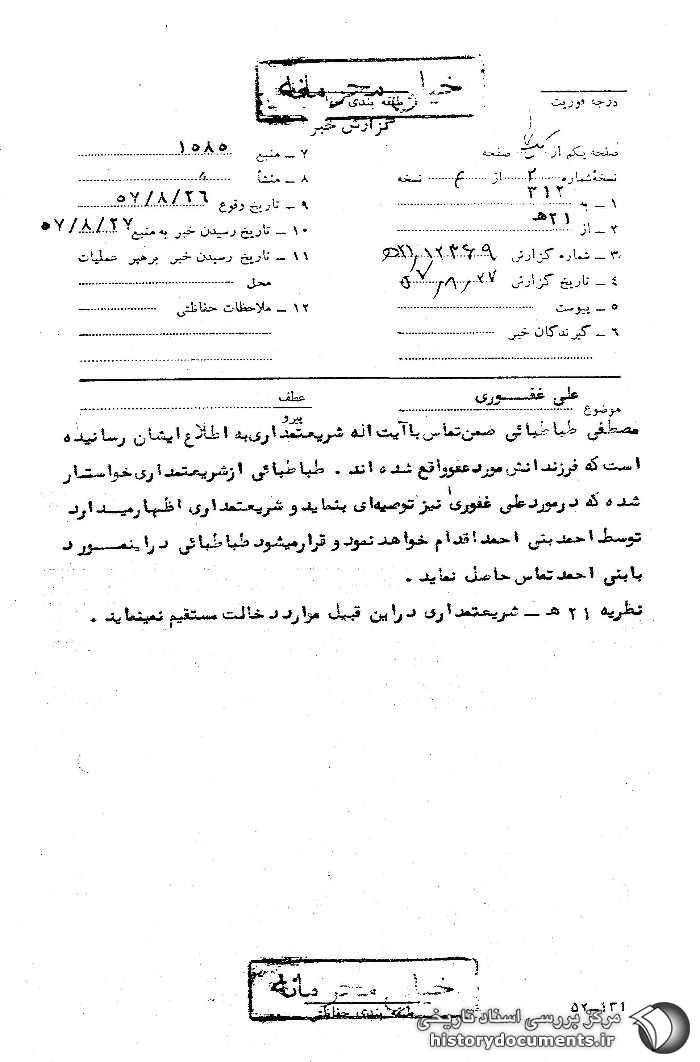 خیلی محرمانه
طبقه بندی حفاظتی
درجه فوریت
گزارش خبر
صفحه یکم از یک صفحه
نسخه شماره ۲ از ۴ نسخه
۱ ـ به ۳۱۲
۲ ـ از ۲۱ هـ
۳ ـ شماره گزارش ۲۱/۱۲۳۶۹ هـ
۴ ـ تاریخ گزارش ۵۷/۸/۲۷
۵ ـ پیوست
۶ ـ گیرندگان خبر
۷ ـ منبع ۱۵۸۵
۸ ـ منشأ "
۹ ـ تاریخ وقوع ۵۷/۸/۲۶
۱۰ ـ تاریخ رسیدن خبر به منبع ۵۷/۸/۲۷
۱۱ ـ تاریخ رسیدن خبر برهبر عملیات
محل
۱۲ ـ ملاحظات حفاظتی
موضوع علی غفوری
عطف
پیرو
مصطفی طباطبائی ضمن تماس با آیت اله شریعتمداری به اطلاع ایشان رسانیده
است که فرزندانش مورد عفو واقع شده اند . طباطبائی از شریعتمداری خواستار
شده که در مورد علی غفوری نیز توصیه‌ای بنماید و شریعتمداری اظهار میدارد
توسط احمد بنی احمد اقدام خواهد نمود و قرار میشود طباطبائی در اینمورد
با بنی احمد تماس حاصل نماید .
نظریه ۲۱ هـ ـ شریعتمداری در این قبیل موارد دخالت مستقیم نمینماید .
خیلی محرمانه
طبقه بندی حفاظتی
۵۲–۱۳۱
مرکز بررسی اسناد تاریخی
historydocuments.ir